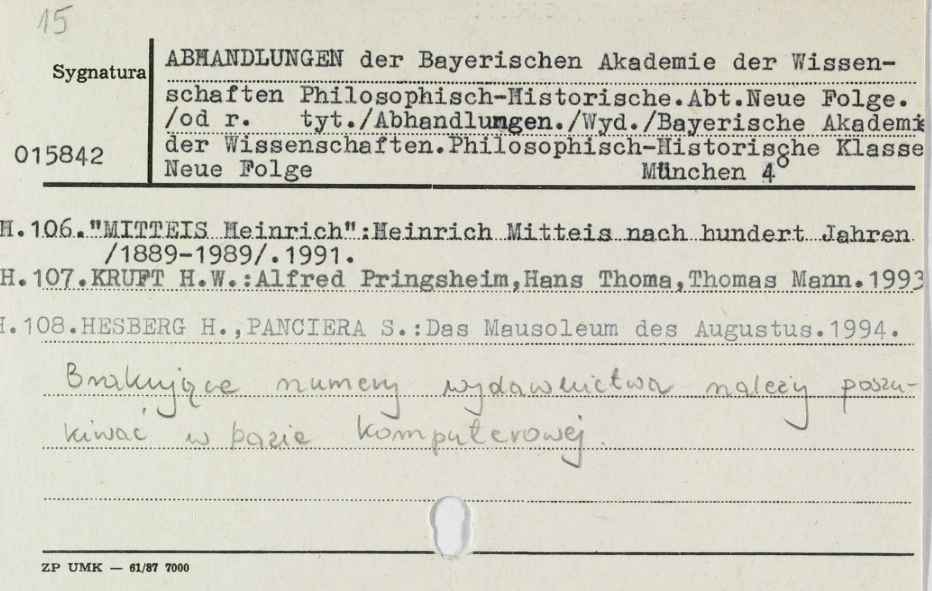 15
Sygnatura
015842
ABHANDLUNGEN der Bayerischen Akademie der Wissen-
schaften Philosophisch-Historische.Abt.Neue Folge.
/od r.   tyt./Abhandlungen./Wyd./Bayerische Akademie
der Wissenschaften.Philosophisch-Historische Klasse
Neue Folge   München 4°
H.106."MITTEIS Heinrich":Heinrich Mitteis nach hundert Jahren
/1889-1989/.1991.
H.107.KRUFT H.W.:Alfred Pringsheim,Hans Thoma,Thomas Mann.1993
H.108.HESBERG H.,PANCIERA S.:Das Mausoleum des Augustus.1994.
Brakujące numery wydawnictwa należy poszu-
kiwać w bazie komputerowej.
ZP UMK — 61/87 7000